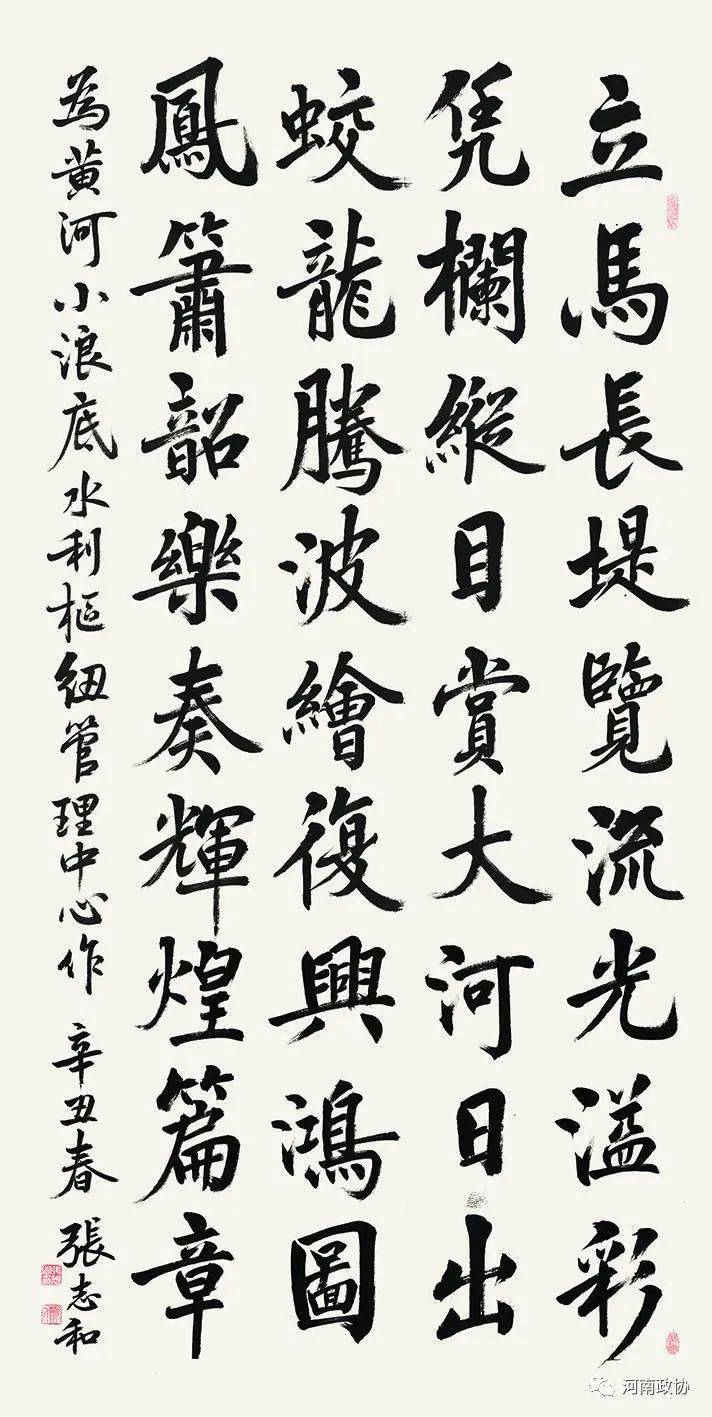 立馬長堤覽流光溢彩
凭欄縱目賞大河日出
蛟龍騰波繪復興鴻圖
鳳簫韶樂奏輝煌篇章
為黄河小浪底水利樞紐管理中心作 辛丑春 張志和
河南政协